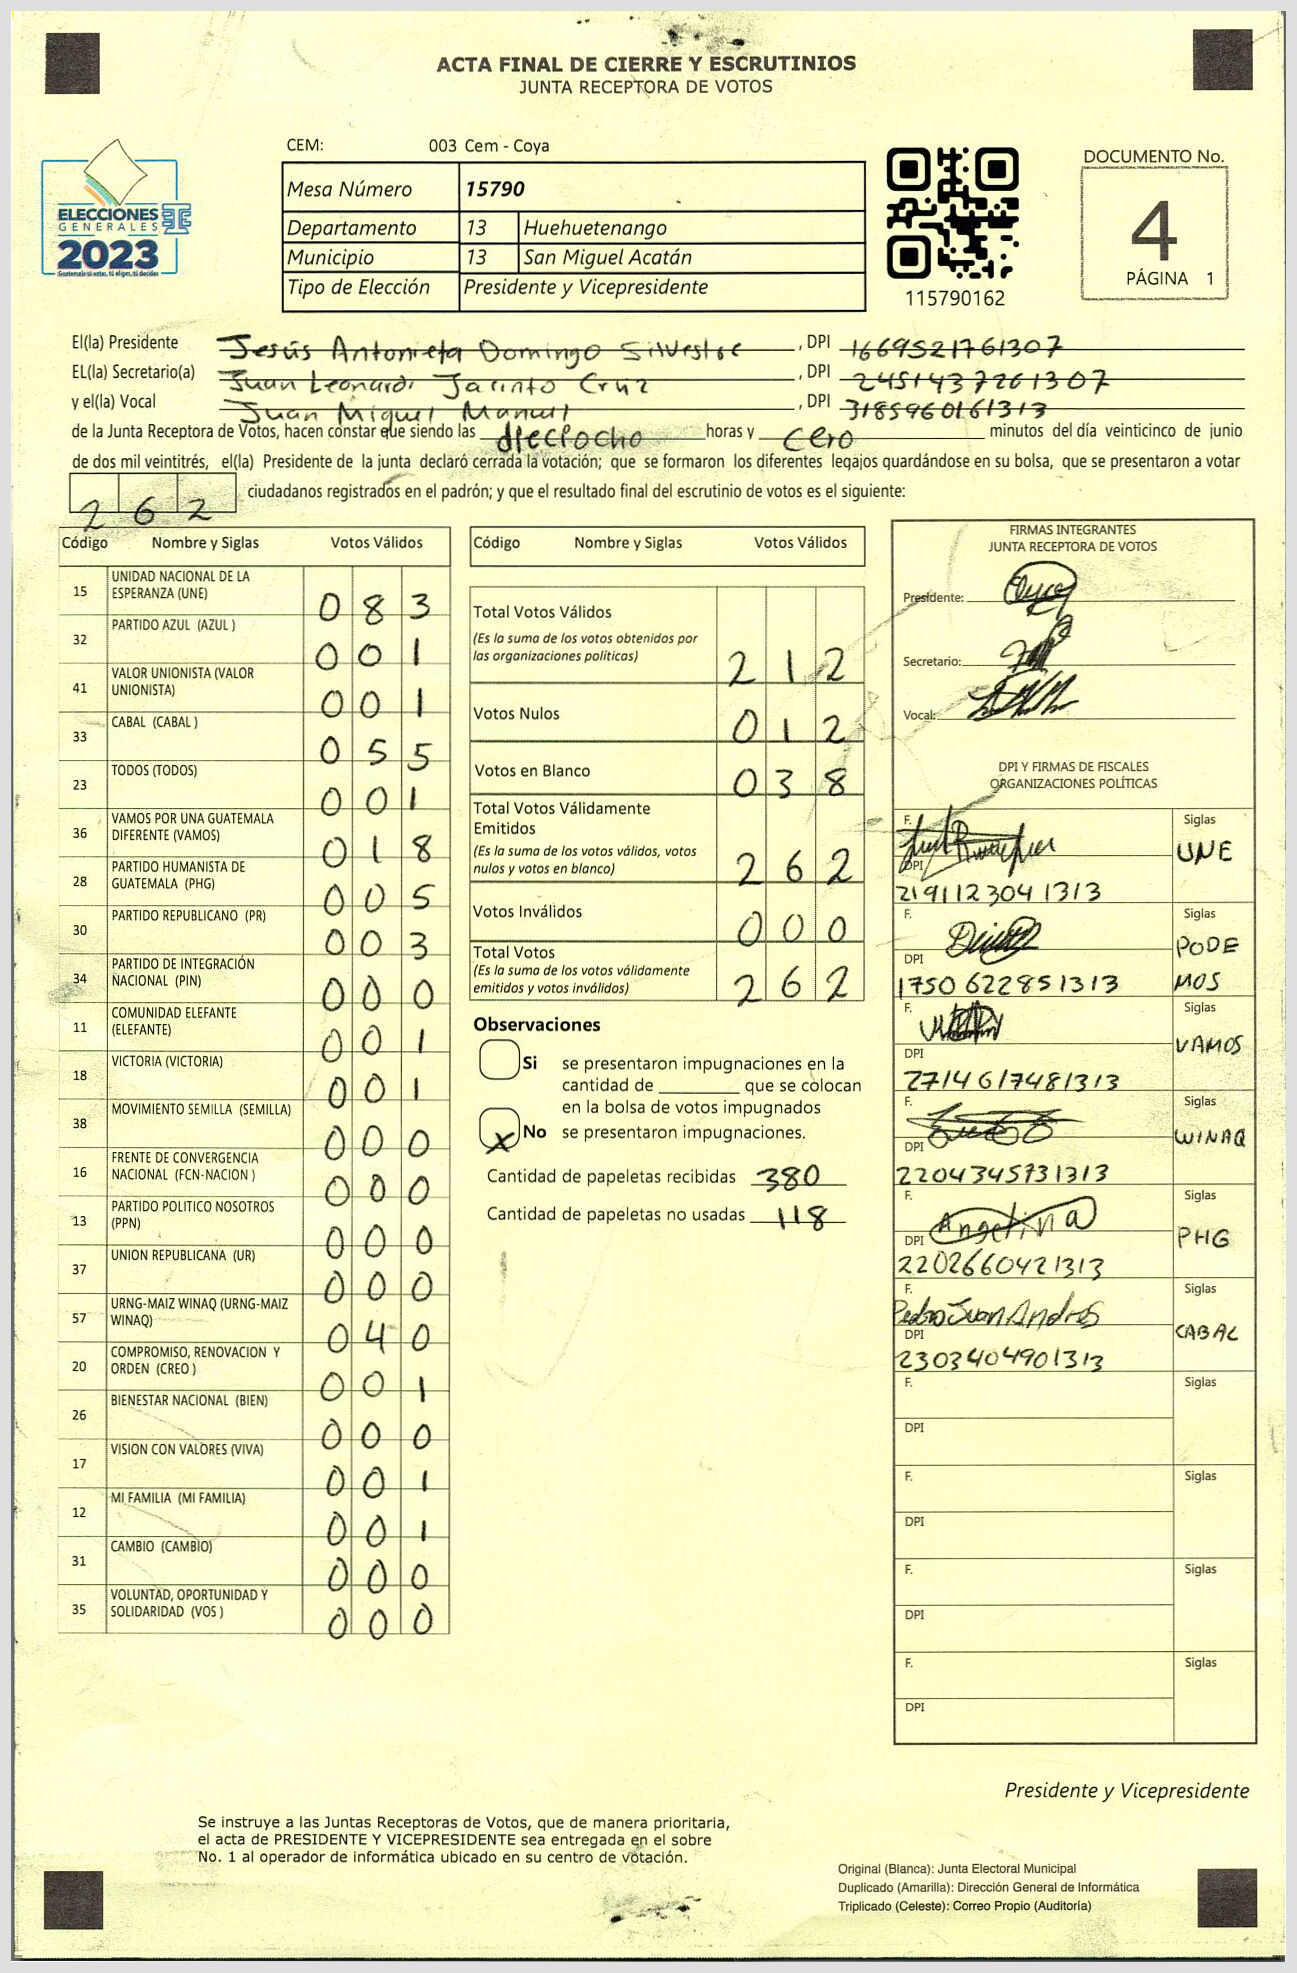 ACTA FINAL DE CIERRE Y ESCRUTINIOS
JUNTA RECEPTORA DE VOTOS
CEM: 003 Cem - Coya
ELECCIONES
GENERALES
2023
Guatemala si votas, tú eliges, tú decides
Mesa Número 15790
Departamento 13 Huehuetenango
Municipio 13 San Miguel Acatán
Tipo de Elección Presidente y Vicepresidente
115790162
DOCUMENTO No.
4
PÁGINA 1
El(la) Presidente Jesús Antonieta Domingo Silvestre, DPI 1669521761307
EL(la) Secretario(a) Juan Leonardi Jacinto Cruz, DPI 2451437261307
y el(la) Vocal Juan Miguel Manuel, DPI 3185960161313
de la Junta Receptora de Votos, hacen constar que siendo las dieciocho horas y cero minutos del día veinticinco de junio
de dos mil veintitrés, el(la) Presidente de la junta declaró cerrada la votación; que se formaron los diferentes legajos guardándose en su bolsa, que se presentaron a votar
262 ciudadanos registrados en el padrón; y que el resultado final del escrutinio de votos es el siguiente:
Código Nombre y Siglas Votos Válidos
15 UNIDAD NACIONAL DE LA
ESPERANZA (UNE) 083
32 PARTIDO AZUL (AZUL ) 001
41 VALOR UNIONISTA (VALOR
UNIONISTA) 001
33 CABAL (CABAL ) 055
23 TODOS (TODOS) 001
36 VAMOS POR UNA GUATEMALA
DIFERENTE (VAMOS) 018
28 PARTIDO HUMANISTA DE
GUATEMALA (PHG) 005
30 PARTIDO REPUBLICANO (PR) 003
34 PARTIDO DE INTEGRACIÓN
NACIONAL (PIN) 000
11 COMUNIDAD ELEFANTE
(ELEFANTE) 001
18 VICTORIA (VICTORIA) 001
38 MOVIMIENTO SEMILLA (SEMILLA) 000
16 FRENTE DE CONVERGENCIA
NACIONAL (FCN-NACION ) 000
13 PARTIDO POLITICO NOSOTROS
(PPN) 000
37 UNION REPUBLICANA (UR) 000
57 URNG-MAIZ WINAQ (URNG-MAIZ
WINAQ) 040
20 COMPROMISO, RENOVACION Y
ORDEN (CREO ) 001
26 BIENESTAR NACIONAL (BIEN) 000
17 VISION CON VALORES (VIVA) 001
12 MI FAMILIA (MI FAMILIA) 001
31 CAMBIO (CAMBIO) 000
35 VOLUNTAD, OPORTUNIDAD Y
SOLIDARIDAD (VOS ) 000
Código Nombre y Siglas Votos Válidos
Total Votos Válidos
(Es la suma de los votos obtenidos por
las organizaciones políticas) 212
Votos Nulos 012
Votos en Blanco 038
Total Votos Válidamente
Emitidos
(Es la suma de los votos válidos, votos
nulos y votos en blanco) 262
Votos Inválidos 000
Total Votos
(Es la suma de los votos válidamente
emitidos y votos inválidos) 262
Observaciones
Si se presentaron impugnaciones en la
cantidad de ________ que se colocan
en la bolsa de votos impugnados
X No se presentaron impugnaciones.
Cantidad de papeletas recibidas 380
Cantidad de papeletas no usadas 118
FIRMAS INTEGRANTES
JUNTA RECEPTORA DE VOTOS
Presidente:
Secretario:
Vocal:
DPI Y FIRMAS DE FISCALES
ORGANIZACIONES POLÍTICAS
F. Siglas
UNE
DPI
2191123041313
F. Siglas
PODE
DPI
1750622851313 MOS
F. Siglas
VAMOS
DPI
2714617481313
F. Siglas
WINAQ
DPI
2204345731313
F. Siglas
Angelina
PHG
DPI
2202660421313
F. Siglas
Pedro Juan Andres
CABAL
DPI
2303404901313
F. Siglas
DPI
F. Siglas
DPI
F. Siglas
DPI
F. Siglas
DPI
Presidente y Vicepresidente
Se instruye a las Juntas Receptoras de Votos, que de manera prioritaria,
el acta de PRESIDENTE Y VICEPRESIDENTE sea entregada en el sobre
No. 1 al operador de informática ubicado en su centro de votación.
Original (Blanca): Junta Electoral Municipal
Duplicado (Amarilla): Dirección General de Informática
Triplicado (Celeste): Correo Propio (Auditoría)